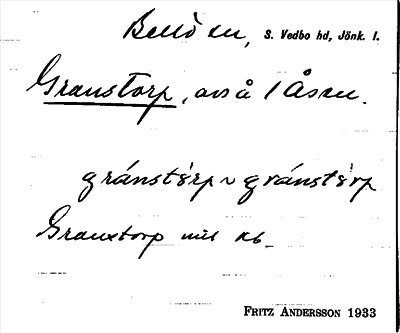 Bellö sn, S. Vedbo hd, Jönk. l.
Granstorp, avs å 1 Åsen.
gránstårp ~ gránstårp
Granstorp mtl Kb
FRITZ ANDERSSON 1933